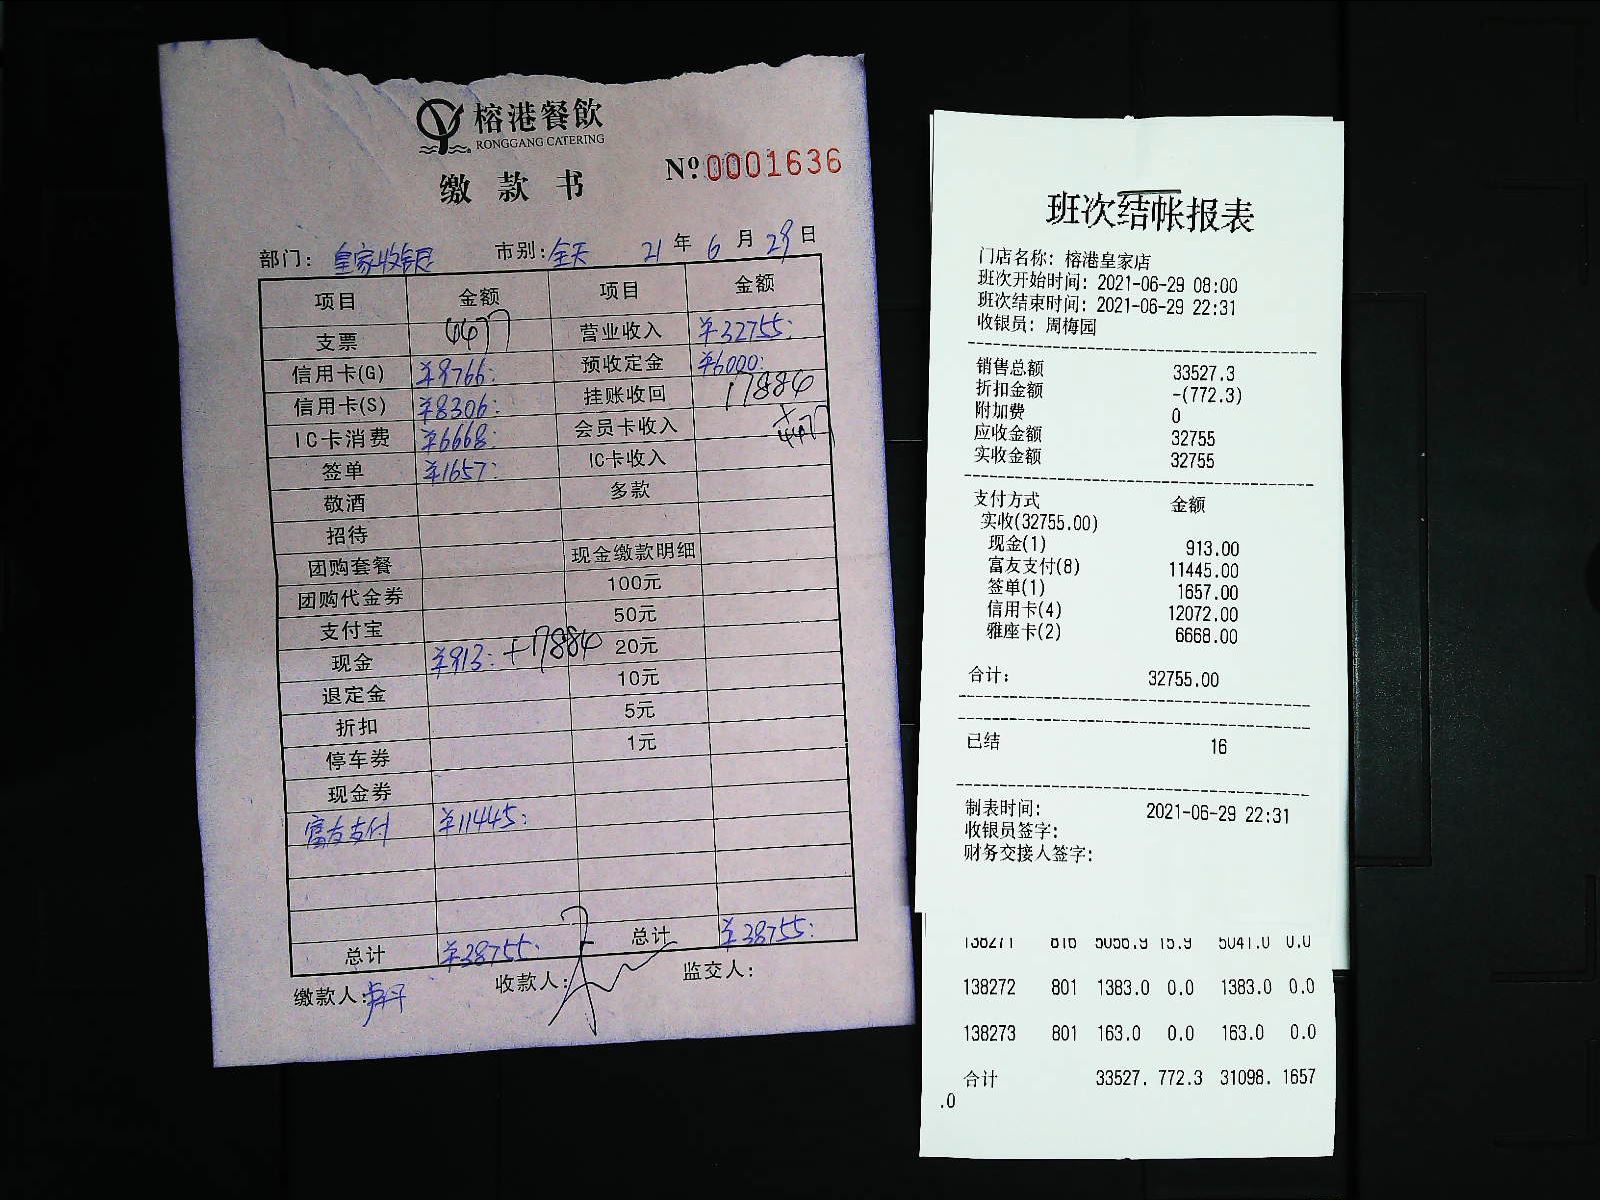 榕港餐飲
RONGGANG CATERING
缴款书
Nº 0001636
部门: 皇家收银 市别: 全天 21年6月29日
项目 金额 项目 金额
支票 4477 营业收入 ¥32755:
信用卡(G) ¥9766: 预收定金 ¥6000:
信用卡(S) ¥8306: 挂账收回 17884
IC卡消费 ¥6668: 会员卡收入 +4477
签单 ¥1657: IC卡收入
敬酒 多款
招待
团购套餐 现金缴款明细
团购代金券 100元
支付宝 50元
现金 ¥913: +17884 20元
退定金 10元
折扣 5元
停车券 1元
现金券
富友支付 ¥11445:
总计 ¥38755: 总计 ¥38755:
缴款人: 收款人: 监交人:
班次结帐报表
门店名称: 榕港皇家店
班次开始时间: 2021-06-29 08:00
班次结束时间: 2021-06-29 22:31
收银员: 周梅园
销售总额 33527.3
折扣金额 -(772.3)
附加费 0
应收金额 32755
实收金额 32755
支付方式 金额
实收(32755.00)
现金(1) 913.00
富友支付(8) 11445.00
签单(1) 1657.00
信用卡(4) 12072.00
雅座卡(2) 6668.00
合计: 32755.00
已结 16
制表时间: 2021-06-29 22:31
收银员签字:
财务交接人签字:
138271 816 5056.9 15.9 5041.0 0.0
138272 801 1383.0 0.0 1383.0 0.0
138273 801 163.0 0.0 163.0 0.0
合计 33527. 772.3 31098. 1657
.0